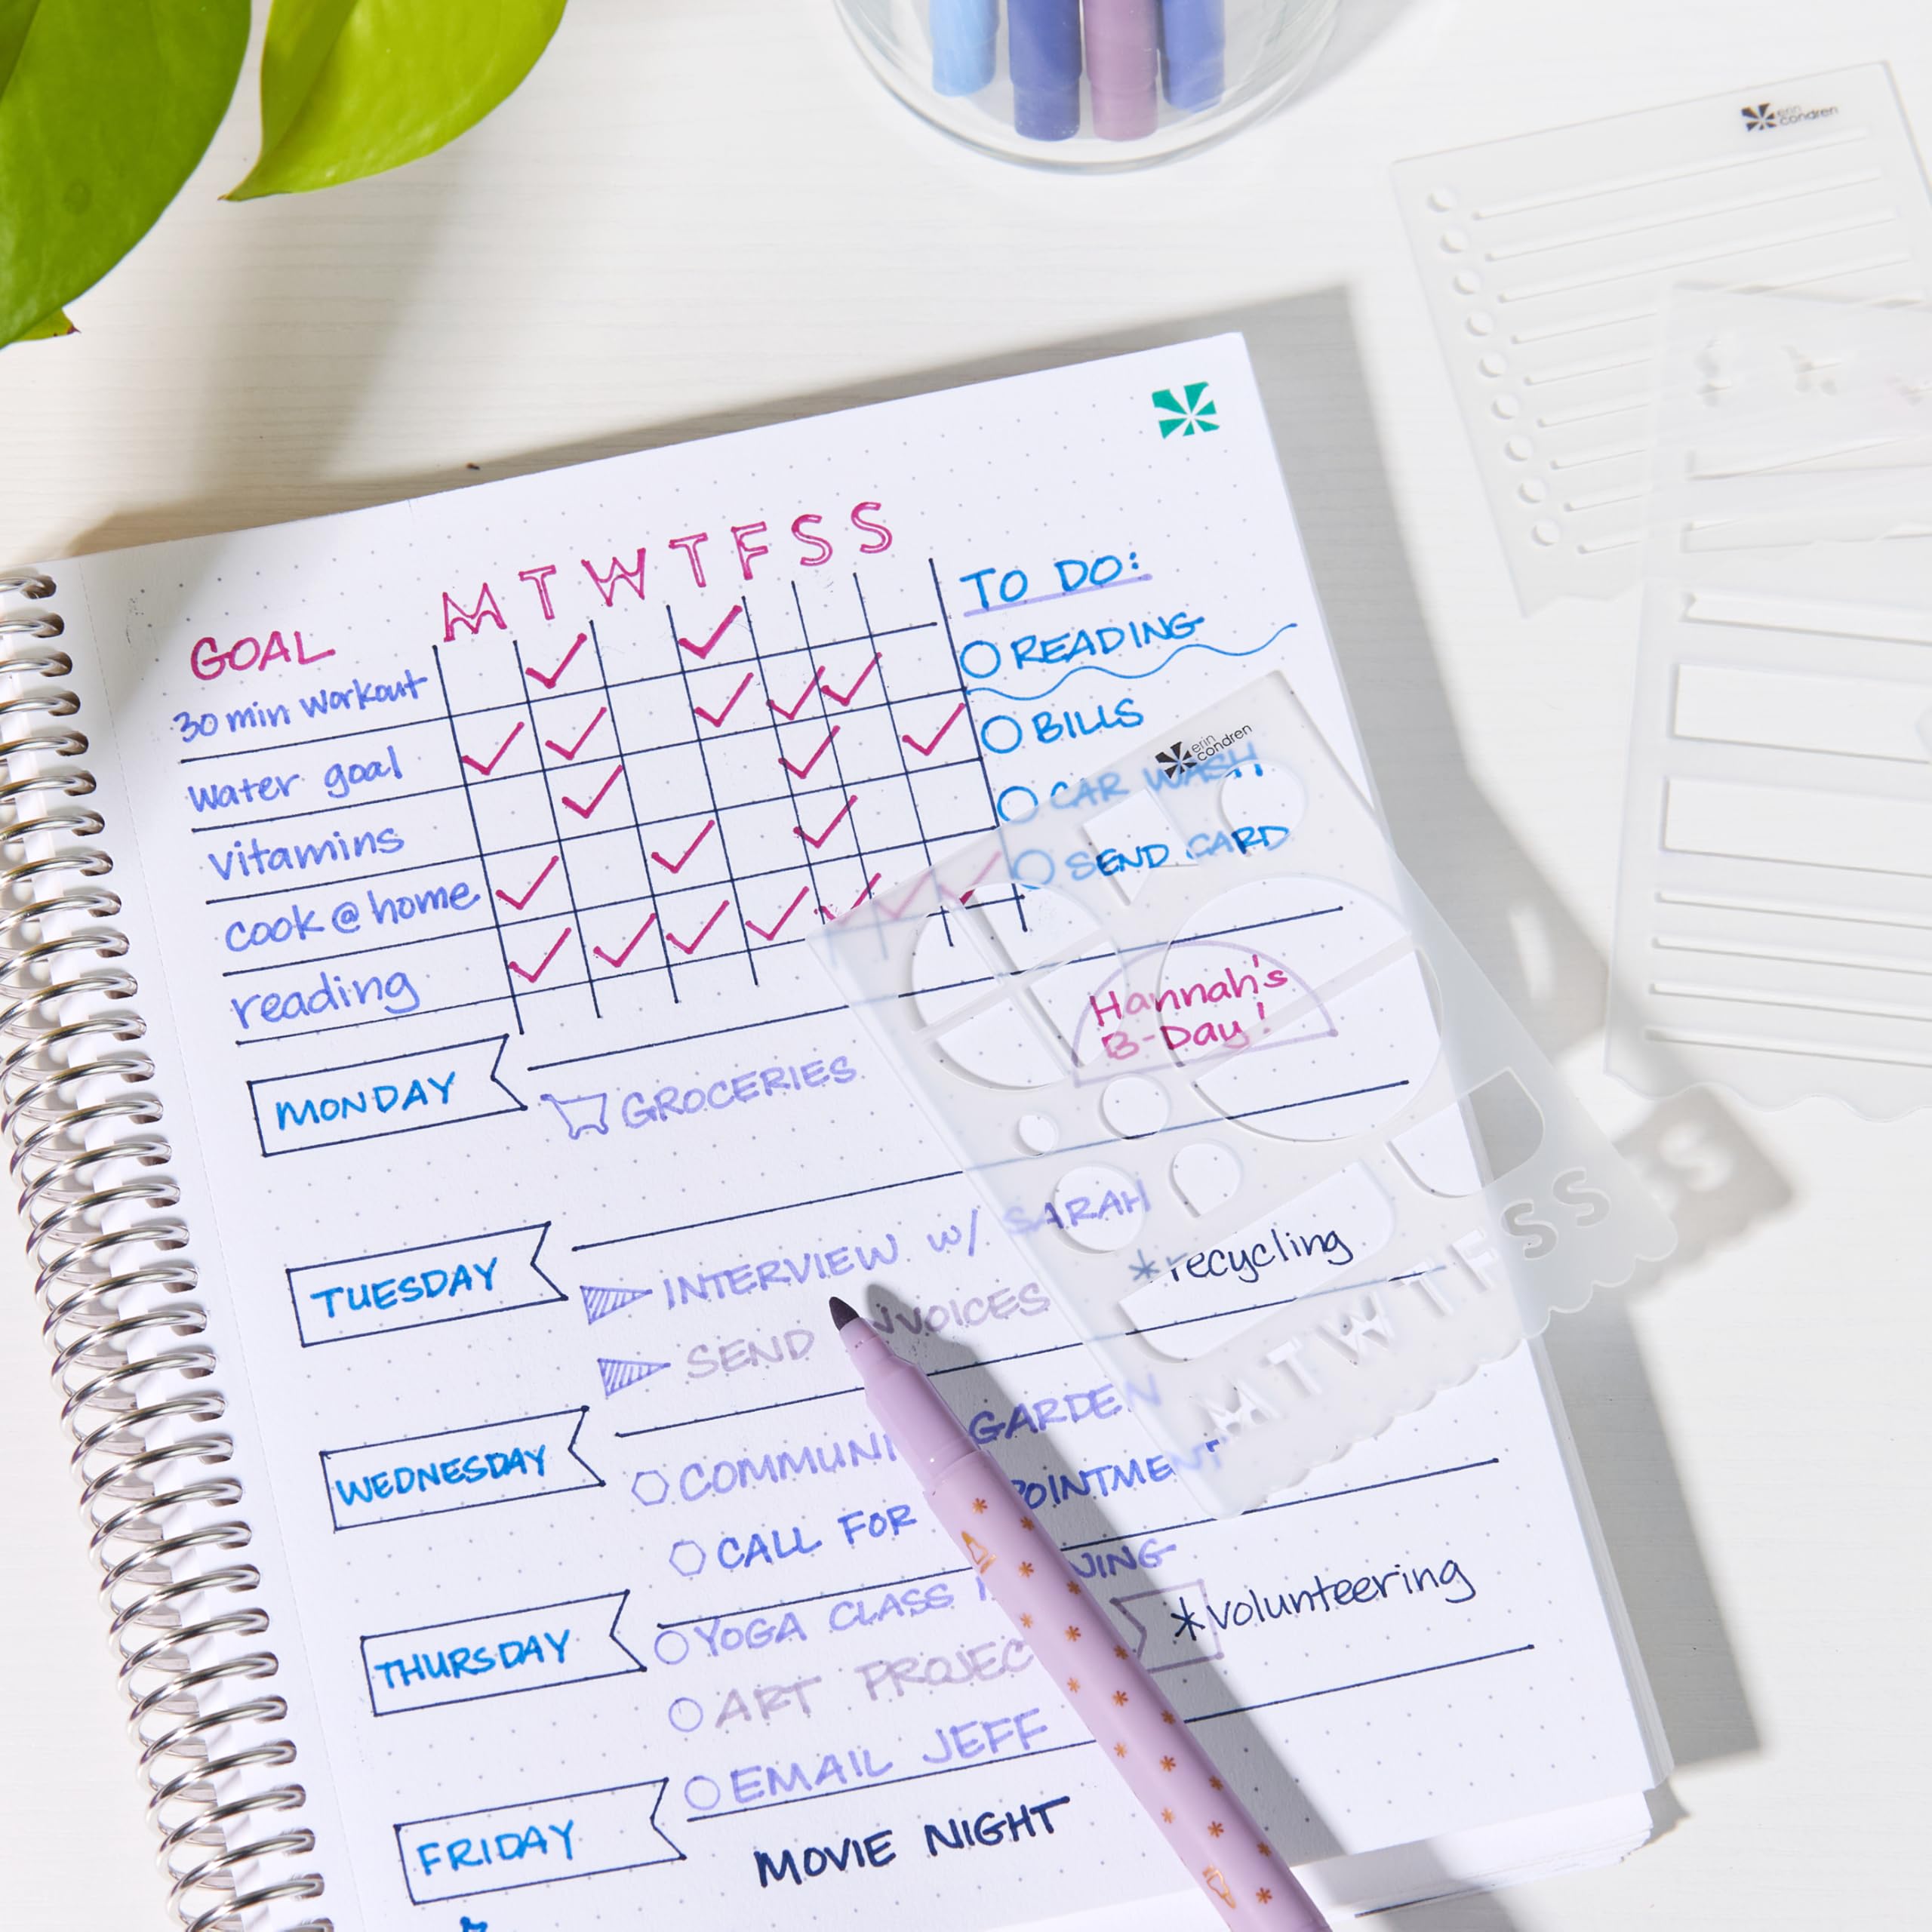 erin
condren
M T W T F S S
GOAL
TO DO:
30 min workout
READING
water goal
BILLS
erin
condren
vitamins
CAR WASH
cook @ home
SEND CARD
reading
Hannah's
B-Day!
MONDAY
GROCERIES
TUESDAY
INTERVIEW w/ SARAH
*recycling
SEND NVOICES
M T W T F S S
WEDNESDAY
COMMUNI GARDEN
CALL FOR POINTMENT
THURSDAY
YOGA CLASS NING
*volunteering
ART PROJEC
EMAIL JEFF
FRIDAY
MOVIE NIGHT